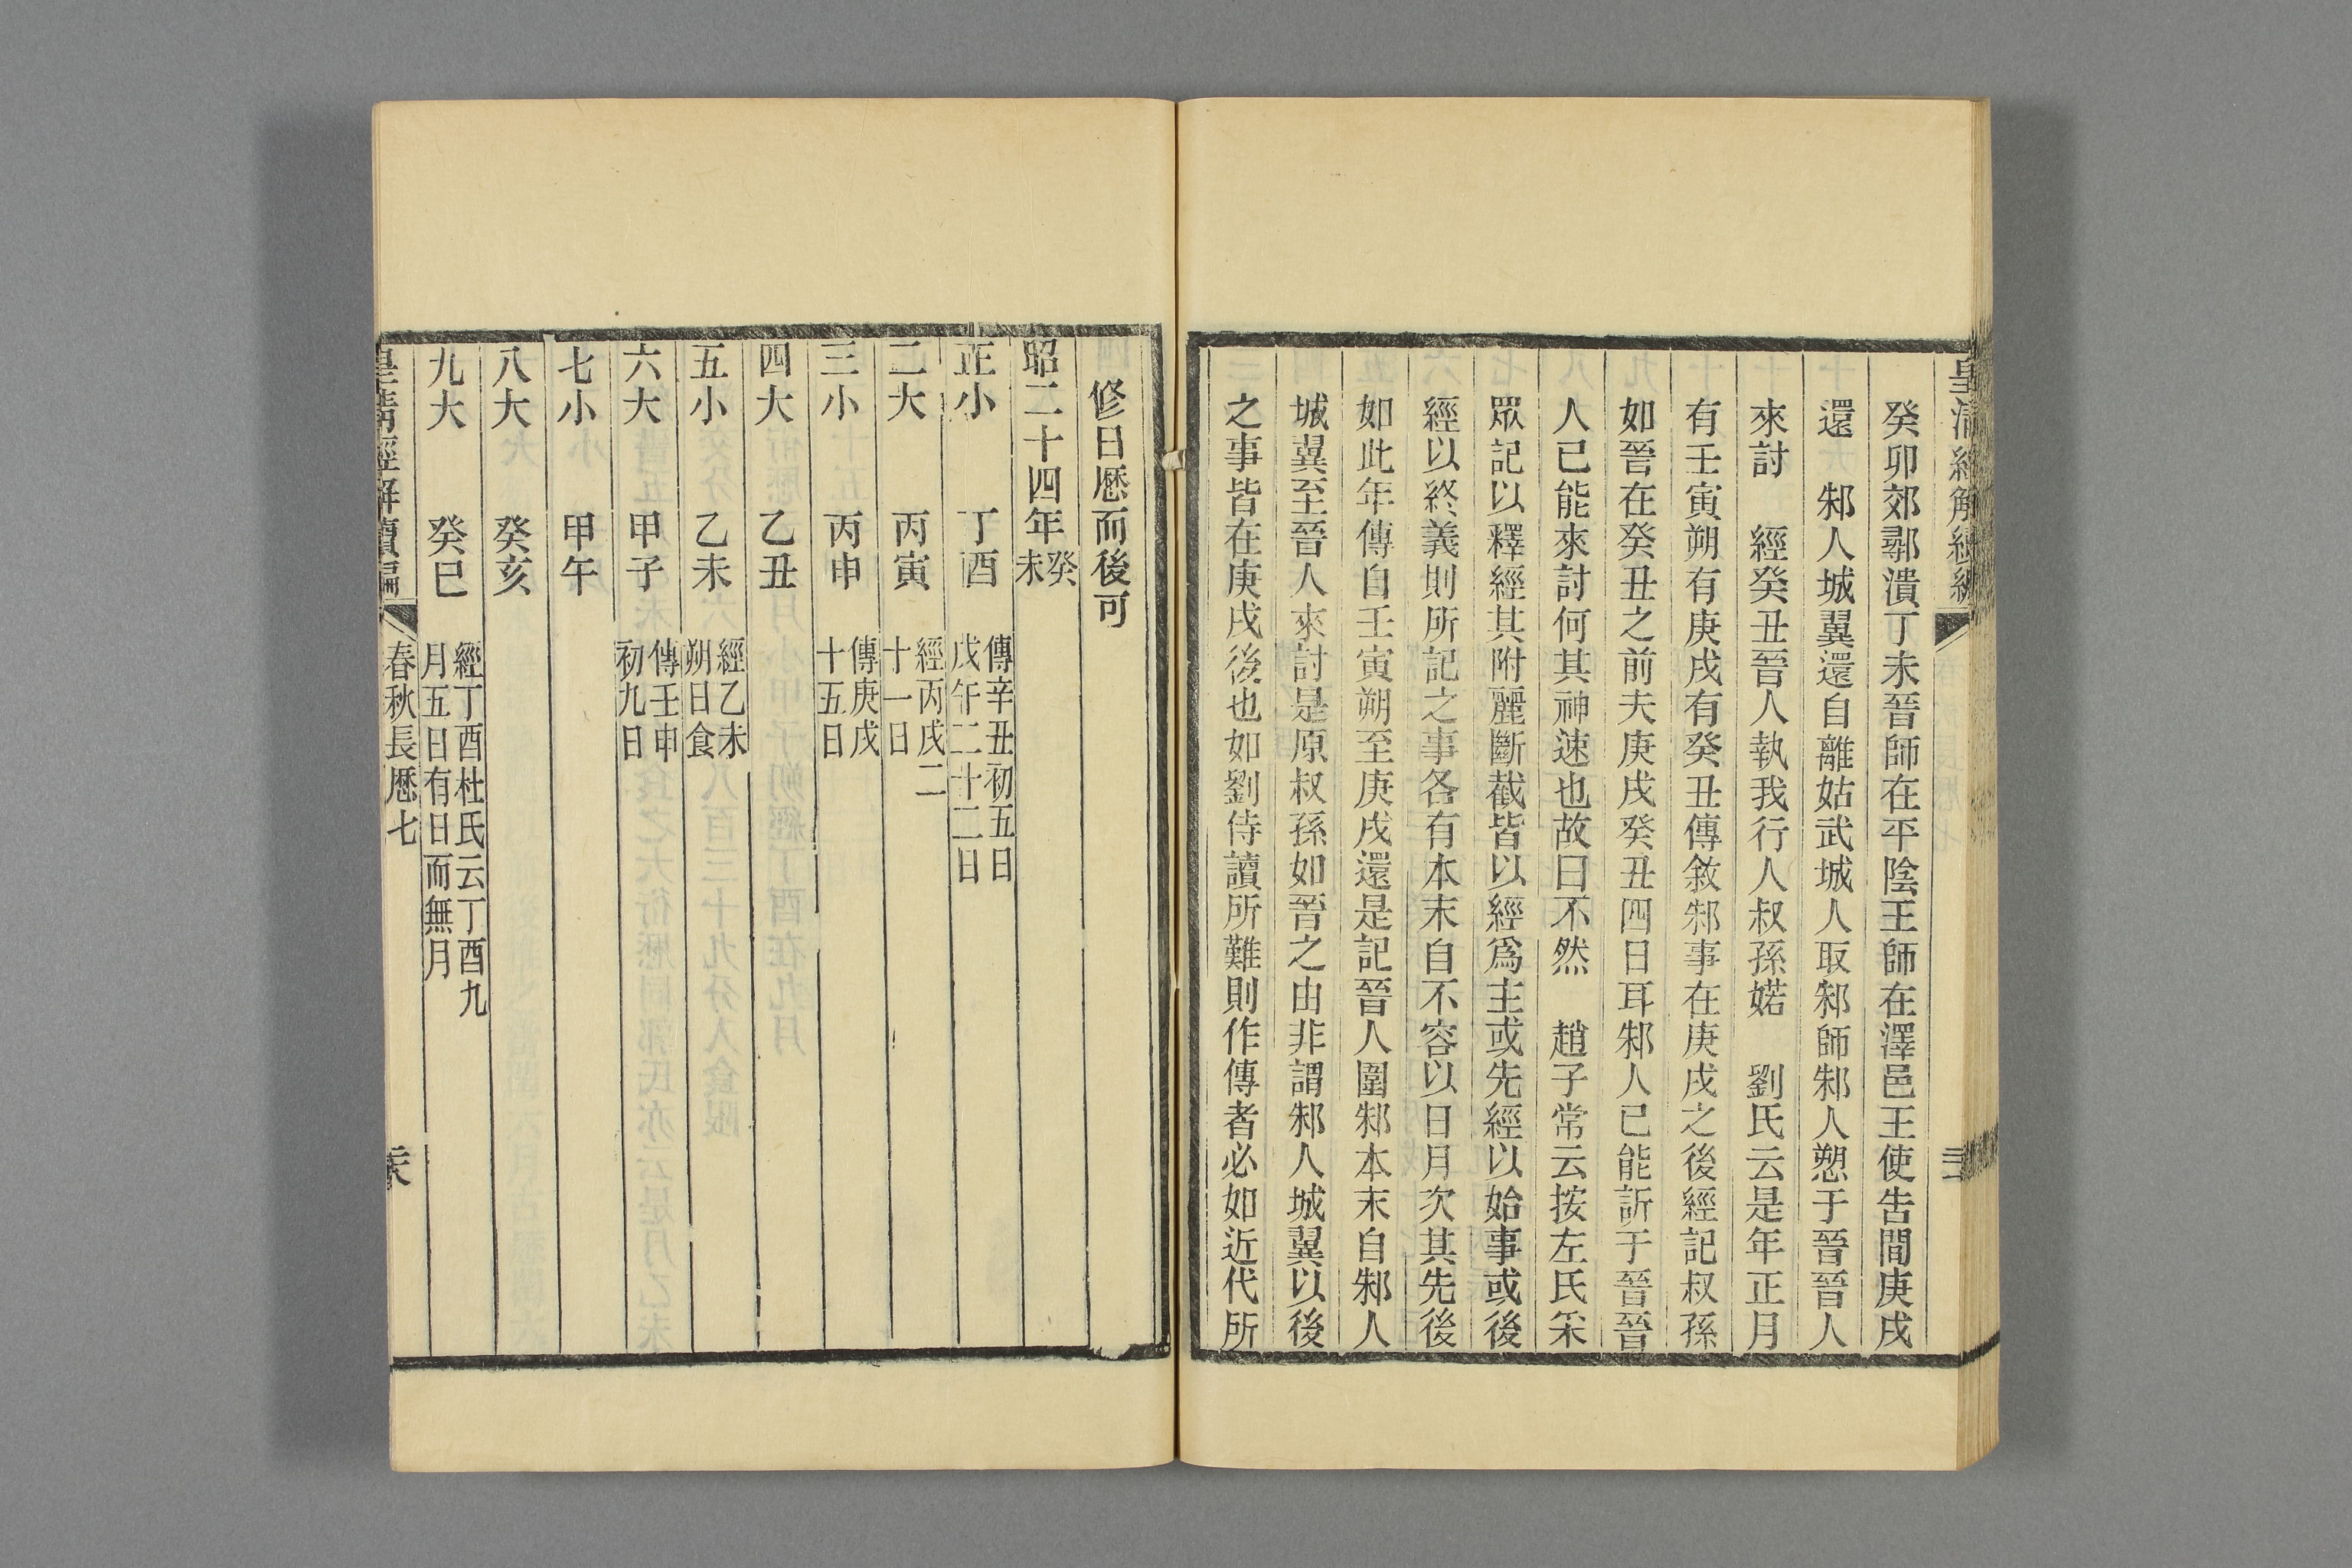 皇清經解續編
癸卯郊鄩潰丁未晉師在平陰王師在澤邑王使告間庚戌
還　邾人城翼還自離姑武城人取邾師邾人愬于晉晉人
來討　經癸丑晉人執我行人叔孫婼　劉氏云是年正月
有壬寅朔有庚戌有癸丑傳敘邾事在庚戌之後經記叔孫
如晉在癸丑之前夫庚戌癸丑四日耳邾人已能訴于晉晉
人已能來討何其神速也故曰不然　趙子常云按左氏釆
眾記以釋經其附麗斷截皆以經爲主或先經以始事或後
經以終義則所記之事各有本末自不容以日月次其先後
如此年傳自壬寅朔至庚戌還是記晉人圍郊本末自邾人
城翼至晉人來討是原叔孫如晉之由非謂邾人城翼以後
之事皆在庚戌後也如劉侍讀所難則作傳者必如近代所
修日厯而後可
昭二十四年癸未
正小　丁酉　傳辛丑初五日戊午二十二日
二大　丙寅　經丙戌二十一日
三小　丙申　傳庚戌十五日
四大　乙丑
五小　乙未　經乙未朔日食
六大　甲子　傳壬申初九日
七小　甲午
八大　癸亥
九大　癸巳　經丁酉杜氏云丁酉九月五日有日而無月
皇清經解續編　春秋長厯七